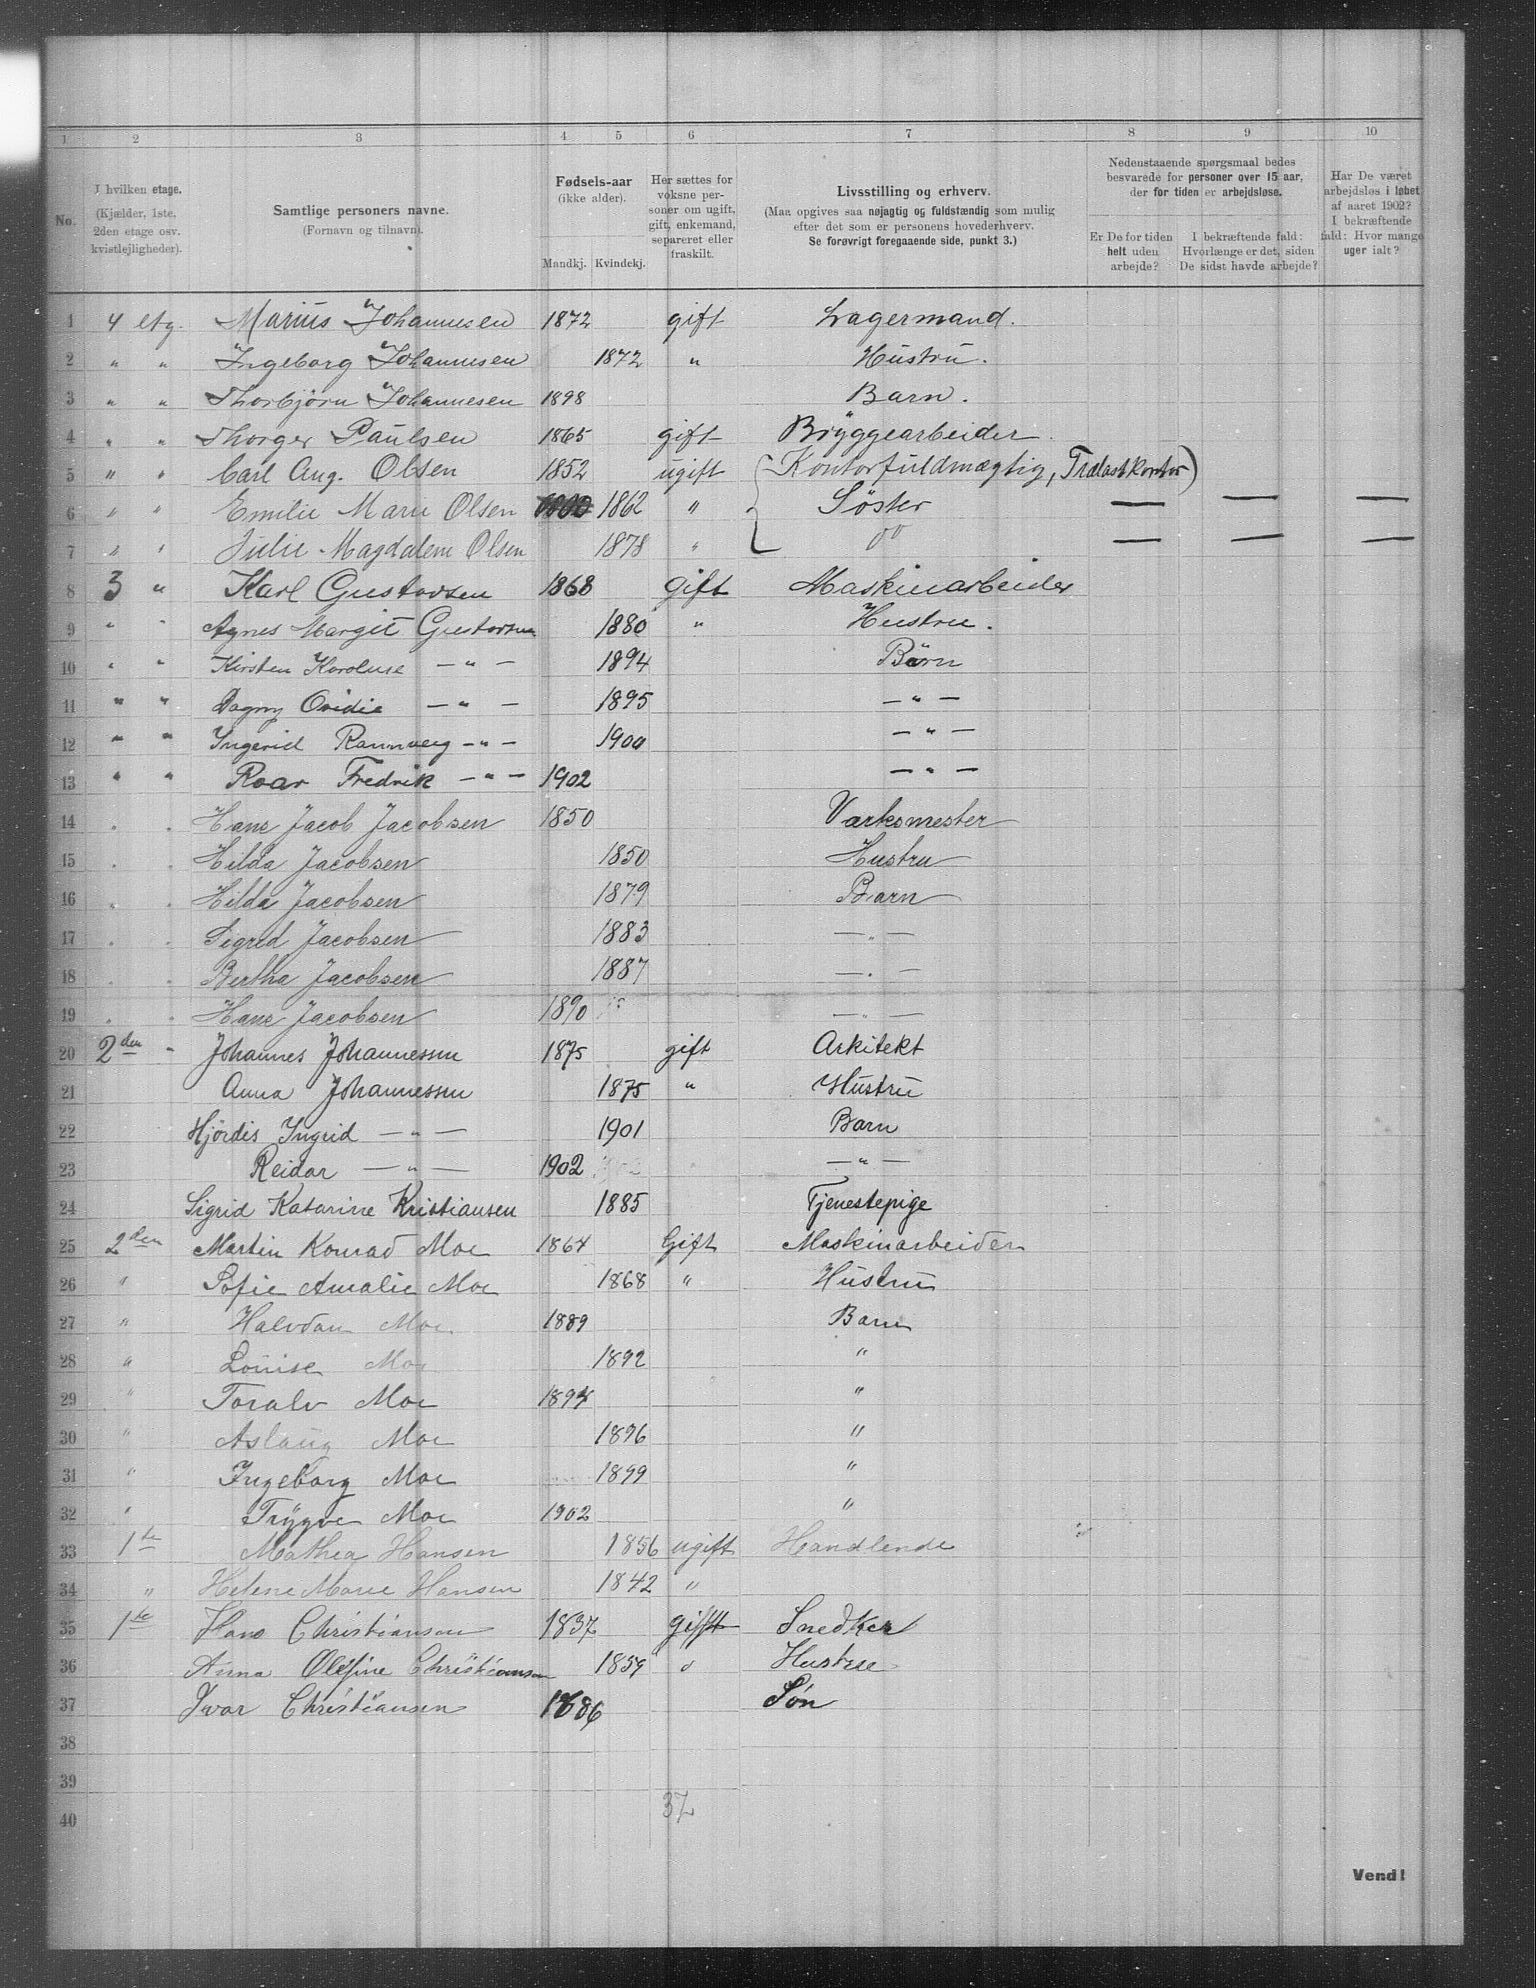 1 2 3 4 5 6 7 8 9 10
No.
I hvilken etage. (Kjælder, 1ste, 2den etage osv. kvistlejligheder).
Samtlige personers navne. (Fornavn og tilnavn).
Fødsels-aar (ikke alder).
Mandkj. Kvindekj.
Her sættes for voksne personer om ugift, gift, enkemand, separeret eller fraskilt.
Livsstilling og erhverv.
(Maa opgives saa nøjagtig og fuldstændig som mulig efter det som er personens hovederhverv.
Se forøvrigt foregaaende side, punkt 3.)
Nedenstaaende spørgsmaal bedes besvarede for personer over 15 aar, der for tiden er arbejdsløse.
Er De for tiden helt uden arbejde?
I bekræftende fald: Hvorlænge er det, siden De sidst havde arbejde?
Har De været arbejdsløs i løbet af aaret 1902? I bekræftende fald: Hvor mange uger ialt?
1 4 etg. Marius Johannesen 1872 gift Lagermand.
2 " " Ingeborg Johannesen 1872 " Hustru.
3 " " Thorbjørn Johannesen 1898 Barn.
4 " " Thorger Paulsen 1865 gift Bryggearbeider.
5 " " Carl Aug. Olsen 1852 ugift Kontorfuldmægtig, Trælastkontor)
6 " " Emilie Marie Olsen 1862 " Søster — — —
7 " " Julie Magdalene Olsen 1878 " do — — —
8 3 " Karl Gustavsen 1868 gift Maskinarbeider
9 " " Agnes Margit Gustavsen 1880 " Hustru.
10 " " Kirsten Karoluse — " — 1894 Børn
11 " " Dagny Ovidie — " — 1895 — " —
12 " " Yngerid Rannveig — " — 1900 — " —
13 " " Roar Fredrik — " — 1902 — " —
14 " " Hans Jacob Jacobsen 1850 Værksmester
15 " " Hilda Jacobsen 1850 Hustru
16 " " Hilda Jacobsen 1879 Barn
17 " " Sigred Jacobsen 1883 — " —
18 " " Bertha Jacobsen 1887 — " —
19 " " Hans Jacobsen 1890 — " —
20 2den " Johannes Johannessen 1875 gift Arkitekt
21 Anna Johannessen 1875 " Hustru
22 Hjördis Yngrid — " — 1901 Barn
23 Reidar — " — 1902 — " —
24 Sigrid Katarine Kristiansen 1885 Tjenestepige
25 2den Martin Konrad Moe 1864 Gift Maskinarbeider
26 " Sofie Amalie Moe 1868 " Hustru
27 " Halvdan Moe 1889 Barn
28 " Louise Moe 1892 "
29 " Toralv Moe 1894 "
30 " Aslaug Moe 1896 "
31 " Ingeborg Moe 1899 "
32 " Trygve Moe 1902 "
33 1te Mathea Hansen 1856 ugift Handlende
34 " Helene Marie Hansen 1842 "
35 1te Hans Christiansen 1837 gifft Snedker
36 Anna Olefine Christiansen 1859 " Hustru
37 Ivar Christiansen 1886 Søn
38
39
40
37
Vend!